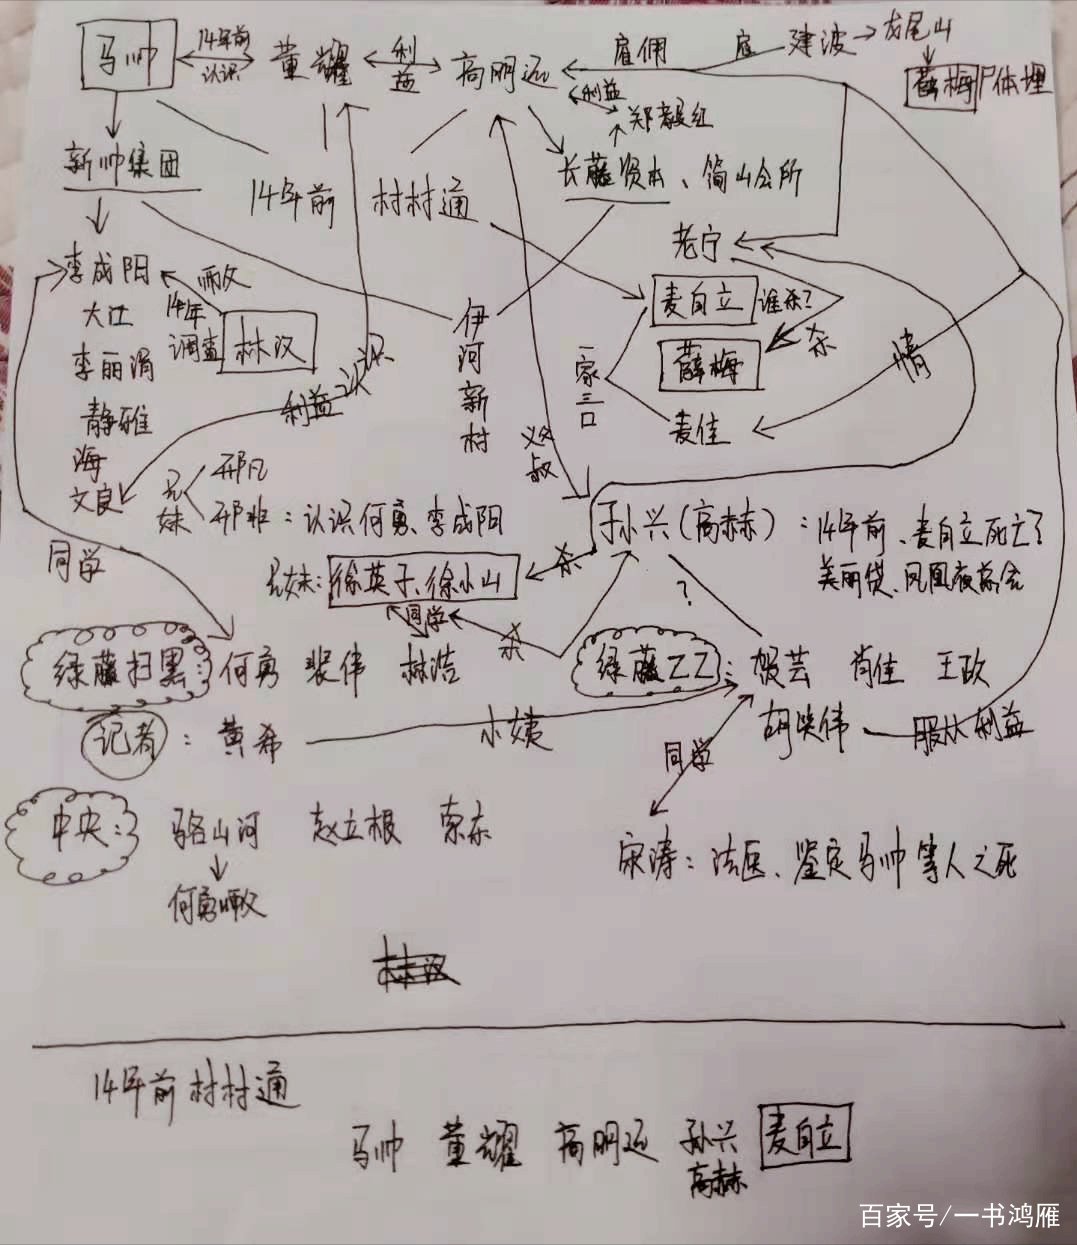 马帅 14年前认识 董耀 利益 高明远 雇佣 建波 龙尾山
薛梅尸体埋
利益
郑毅红
新帅集团
长藤资本、简山会所
14年前 村村通
老宁
李成阳 师父
麦自立 谁杀?
大江 14年调查 林汉
伊河新村
李丽涓
一家三口
薛梅 杀
情
利益 认识
静雅
海
麦佳
文良
义父 叔
兄妹
邢凡
邢非：认识何勇、李成阳
孙兴(高赫)：14年前、麦自立死亡?
美丽贷、凤凰夜总会
同学
兄妹：徐英子、徐小山
杀
同学
?
杀
绿藤扫黑：何勇 裴伟 林浩
绿藤乙乙：贺芸 肖佳 王政
胡笑伟 服从 利益
记者：黄希 小姨
同学
中央：骆山河 赵立根
何勇师父
宋涛：法医、鉴定马帅等人之死
林汉
14年前村村通
马帅 董耀 高明远 孙兴 麦自立
高赫
百家号/一书鸿雁